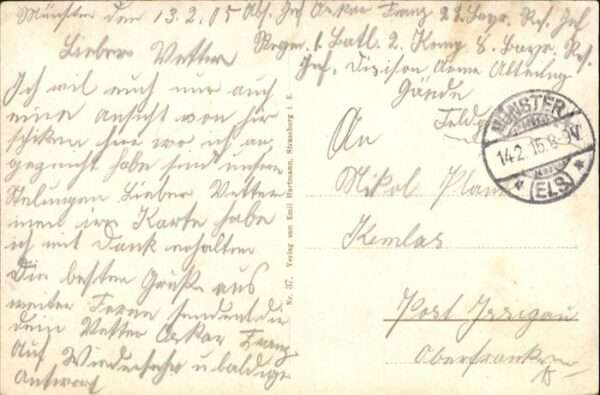 Münster den 13.2.05 Abs. Inf Oskar Franz 22 Bayr. Res. Inf
Regm. 1. Batl. 2. Komp 8. Bayr. Res.
Inf. Division Arme Abteilug
Gände
Feldp
Lieber Vetter
Ich wil euch nur auch
eine Ansicht von hir
schiken hir wo ich an
gezeicht habe sind unsere
Stelungen Lieber Vetter
Karte habe
ich mit Dank erhalten
Die besten Grüße aus
weiter Ferne sendent dir
dein Vetter Oskar Franz
Auf Wiedersehn u baldige
Antwort
Nr. 37. Verlag von Emil Hartmann, Strassburg i. E.
MÜNSTER
14.2.15.8-9V.
* (ELS) *
An
Nikol
Kemlas
Post Issigau
Oberfranken